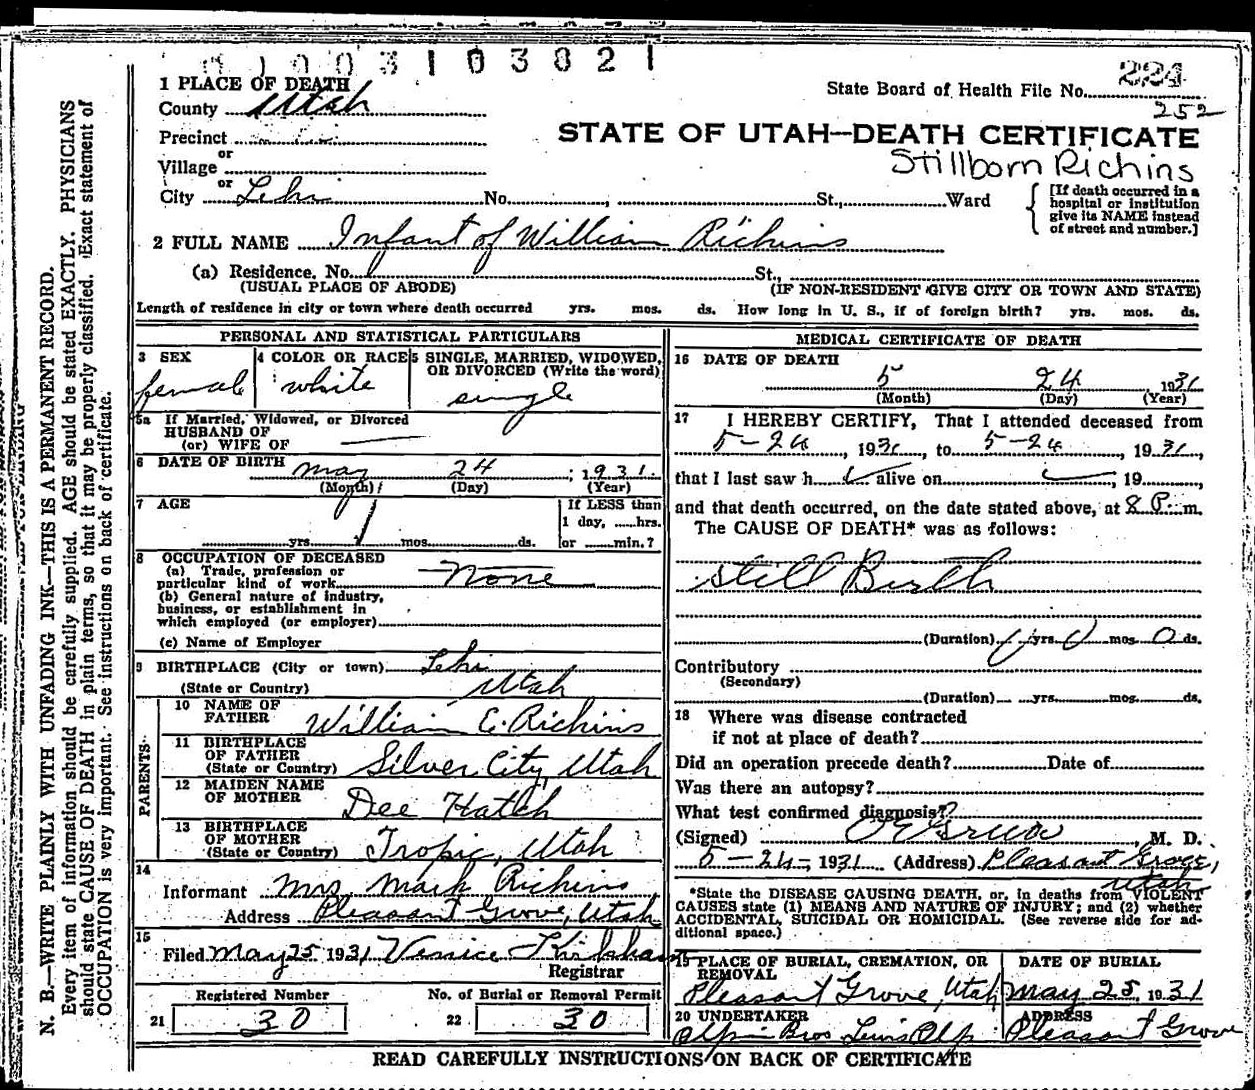 1003103021
1 PLACE OF DEATH
County Utah
State Board of Health File No. 224
252
Precinct
STATE OF UTAH—DEATH CERTIFICATE
or
Village
Stillborn Richins
or
City Lehi No. , St., Ward
[If death occurred in a
hospital or institution
give its NAME instead
of street and number.]
2 FULL NAME Infant of William Richins
(a) Residence. No. St.,
(USUAL PLACE OF ABODE) (IF NON-RESIDENT GIVE CITY OR TOWN AND STATE)
Length of residence in city or town where death occurred yrs. mos. ds. How long in U. S., if of foreign birth? yrs. mos. ds.
PERSONAL AND STATISTICAL PARTICULARS
3 SEX
female
4 COLOR OR RACE
white
5 SINGLE, MARRIED, WIDOWED,
OR DIVORCED (Write the word)
single
5a If Married, Widowed, or Divorced
HUSBAND OF
(or) WIFE OF —
6 DATE OF BIRTH May 24 ; 1931.
(Month) (Day) (Year)
7 AGE
yrs. mos. ds.
If LESS than
1 day, ......hrs.
or ......min.?
8 OCCUPATION OF DECEASED
(a) Trade, profession or
particular kind of work None
(b) General nature of industry,
business, or establishment in
which employed (or employer)
(c) Name of Employer
9 BIRTHPLACE (City or town) Lehi
(State or Country) Utah
PARENTS
10 NAME OF
FATHER William C. Richins
11 BIRTHPLACE
OF FATHER
(State or Country) Silver City, Utah
12 MAIDEN NAME
OF MOTHER Dee Hatch
13 BIRTHPLACE
OF MOTHER
(State or Country) Tropic, Utah
14
Informant Mrs. Mark Richins
Address Pleasant Grove, Utah
15
Filed May 25 1931 Venice Kirkham
Registrar
Registered Number
21 30
No. of Burial or Removal Permit
22 30
MEDICAL CERTIFICATE OF DEATH
16 DATE OF DEATH
5 24, 1931
(Month) (Day) (Year)
17 I HEREBY CERTIFY, That I attended deceased from
5-24, 1931, to 5-24, 1931,
that I last saw h alive on , 19 ,
and that death occurred, on the date stated above, at 8 P. m.
The CAUSE OF DEATH* was as follows:
Still Birth
(Duration) 0 yrs. 0 mos. 0 ds.
Contributory
(Secondary)
(Duration) yrs. mos. ds.
18 Where was disease contracted
if not at place of death?
Did an operation precede death? Date of
Was there an autopsy?
What test confirmed diagnosis?
(Signed) M. D.
5-24-1931 (Address) Pleasant Grove,
Utah
*State the DISEASE CAUSING DEATH, or, in deaths from VIOLENT
CAUSES state (1) MEANS AND NATURE OF INJURY; and (2) whether
ACCIDENTAL, SUICIDAL OR HOMICIDAL. (See reverse side for ad-
ditional space.)
19 PLACE OF BURIAL, CREMATION, OR
REMOVAL
Pleasant Grove, Utah
DATE OF BURIAL
May 25, 1931
20 UNDERTAKER
Bros
ADDRESS
Pleasant Grove
READ CAREFULLY INSTRUCTIONS ON BACK OF CERTIFICATE
N. B.—WRITE PLAINLY WITH UNFADING INK—THIS IS A PERMANENT RECORD.
Every item of information should be carefully supplied. AGE should be stated EXACTLY. PHYSICIANS
should state CAUSE OF DEATH in plain terms, so that it may be properly classified. Exact statement of
OCCUPATION is very important. See instructions on back of certificate.